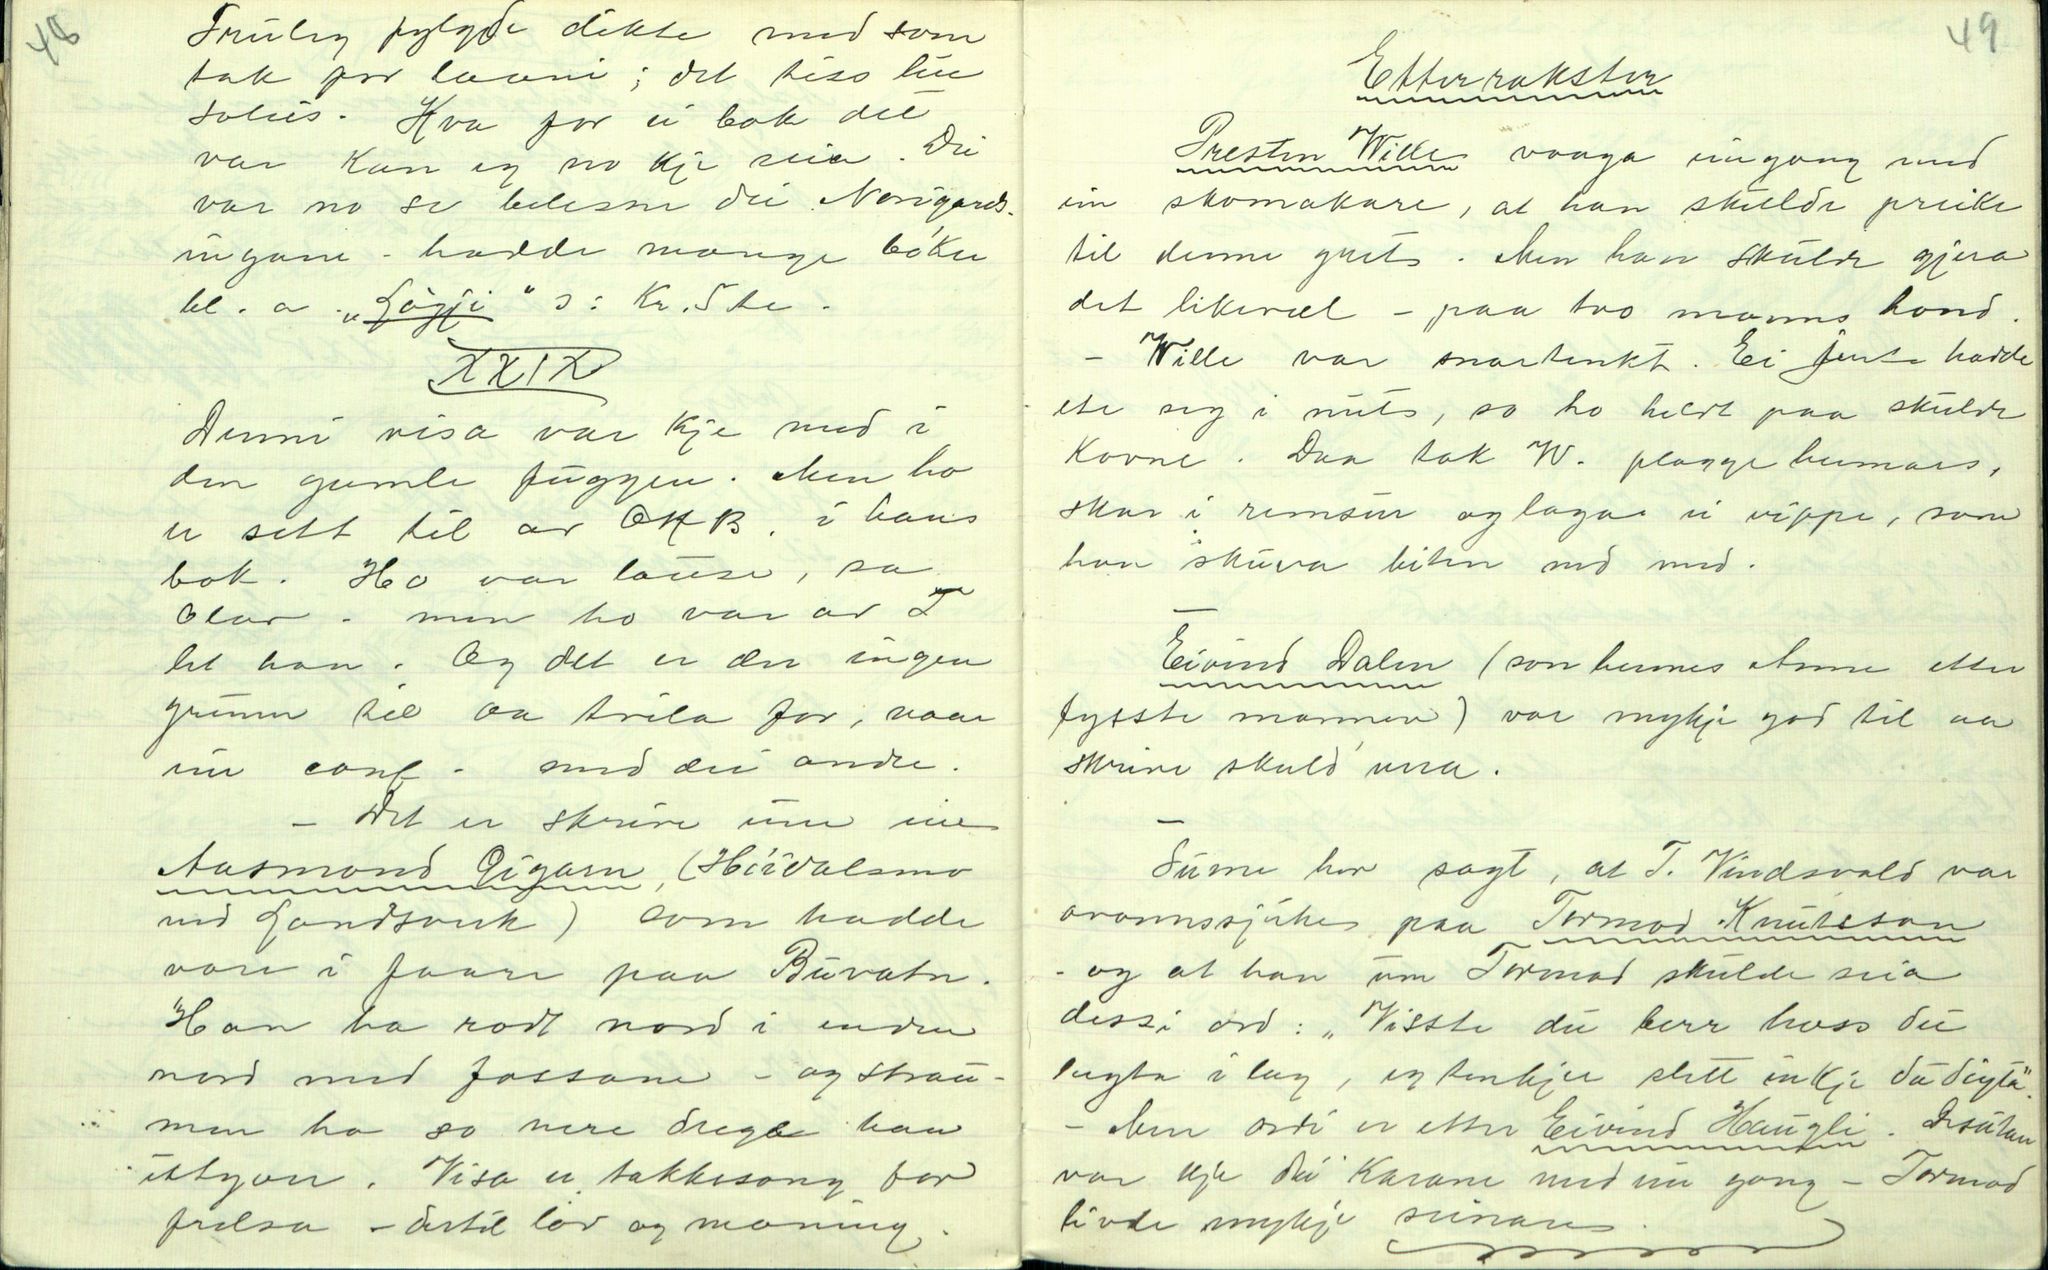 48
Truleg fylgde dikte med som
tak for laani; det tess liu
solus. Kva for ei bok dei
var kan eg no kje seia. Dei
var no se belesne dei Norigards-
ingane - hadde mange bøker
bl. a. „Løgji" ɔ: Kr. 5te.
XXIX
Denni visa var kje med i
den gamle fuggen. Men ho
er sett til av OHB. i hans
bok. Ho var lause, sa
Olav - men ho var av T
let han. Og det er der ingen
grunn til aa tvila for, naar
ein conf. med dei andre.
- Det er skrive um ein
Aasmond Oigarn, (Höidalsmo
ved Landsverk) som hadde
vore i faare paa Buvatn.
"Han ha rodt nord i enden
nord med fossane - og strau-
men ha so nere dregje han
utfyvi. Visa er takkesong for
frelsa - dertil lov og maning.
49
Etterrakster
Presten Wille vaaga eingong med
ein skomakare, at han skulde preike
til denne gret. Men han skulde gjera
det likevel - paa tvo manns hond.
- Wille var snartenkt. Ei jente hadde
ete seg i nuts, so ho heldt paa skulde
kovne. Daa tok W. plagge hennars,
skar i remsur og laga ei vippe, som
han skuva biten ned med.
-
Eivind Dalen (son hennes Anne etter
fysste mannen) var mykje god til aa
skrive skuld vera.
-
Sume har sagt, at T. Vindsvald var
ovannssjuke paa Tormod Knutsson
- og at han um Tormod skulde seia
dessi ord: „Visste du berr hoss du
lugta i lag, eg tenkjer slett inkje du digta".
- Men ordi er etter Eivind Haugli. Desutan
var kje dei karane med ein gong - Tormod
livde mykje seinare.